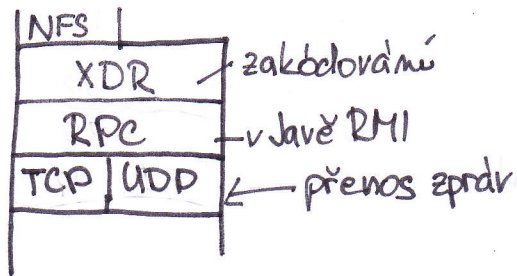 NFS
XDR zakódování
RPC v Javě RMI
TCP UDP přenos zpráv